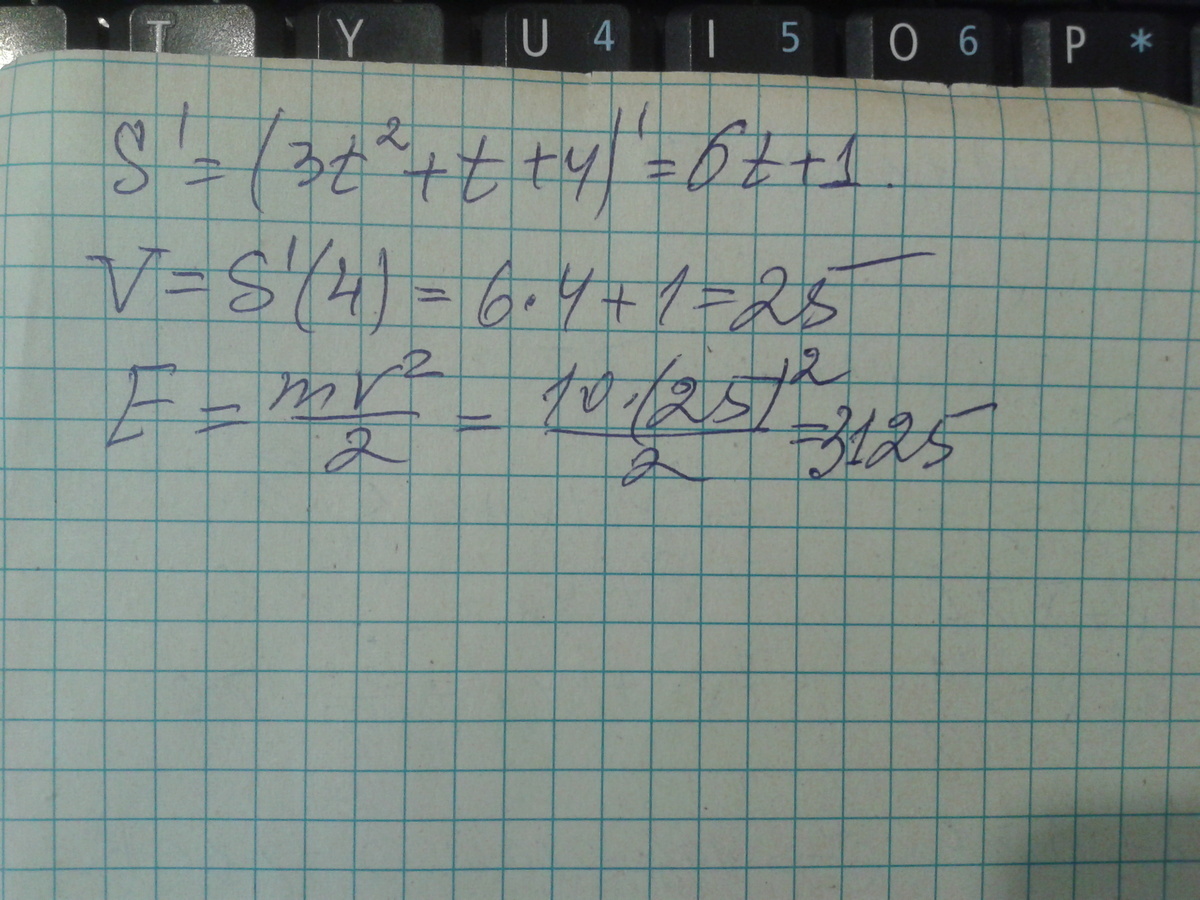 T Y U 4 I 5 O 6 P *
S' = (3t² + t + 4)' = 6t + 1.
V = S'(4) = 6·4 + 1 = 25
E = mv²/2 = 10·(25)²/2 = 3125